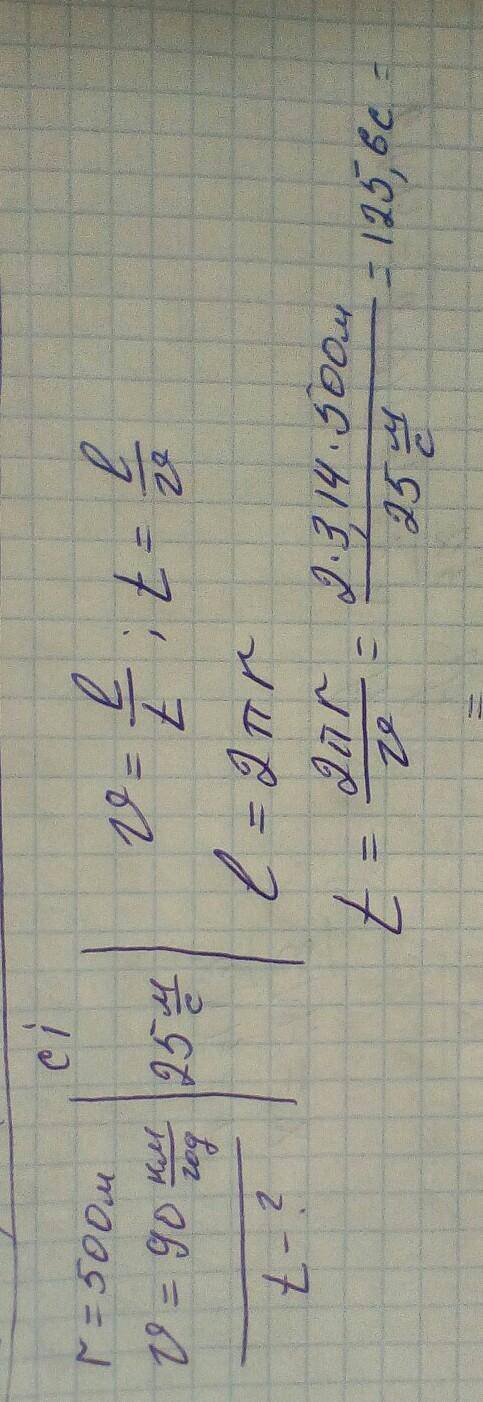 сі
r = 500м
v = 90 км/год | 25 м/с
t - ?
v = l/t ; t = l/v
l = 2πr
t = 2πr/v = 2·3,14·500м / 25 м/с = 125,6с =
=